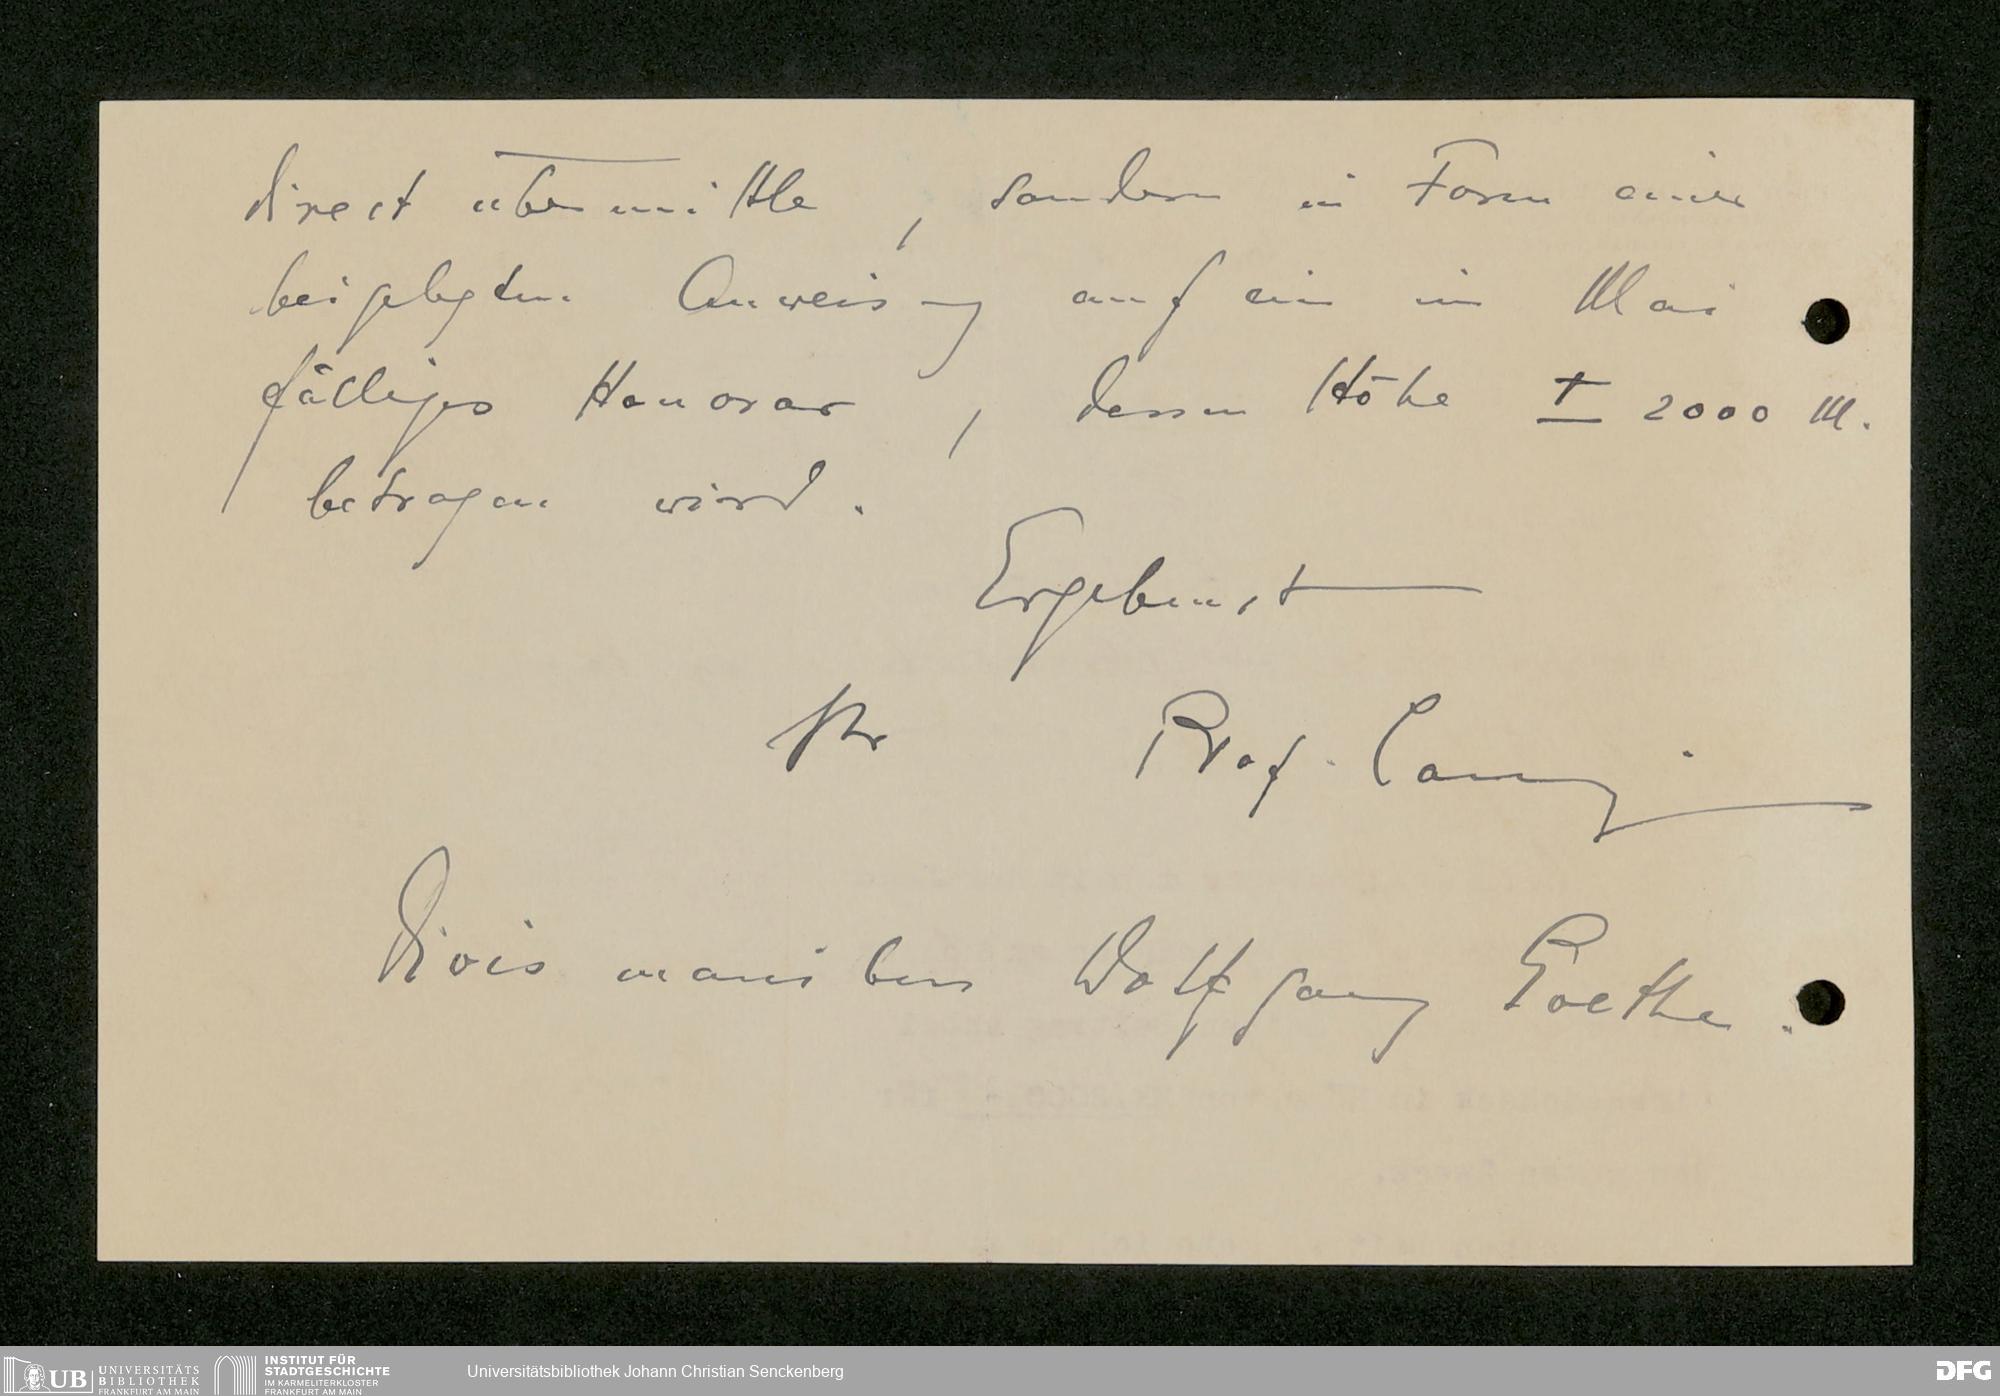 direct übermittle, sondern in Form einer
beigelegten Anweisung auf ein im Mai
fälliges Honorar, dessen Höhe ± 2000 M.
betragen wird.
Ergebenst
Ihr Prof.
Divis manibus Wolfgang Goethe.
UB UNIVERSITÄTS
BIBLIOTHEK
FRANKFURT AM MAIN
INSTITUT FÜR
STADTGESCHICHTE
IM KARMELITERKLOSTER
FRANKFURT AM MAIN
Universitätsbibliothek Johann Christian Senckenberg
DFG